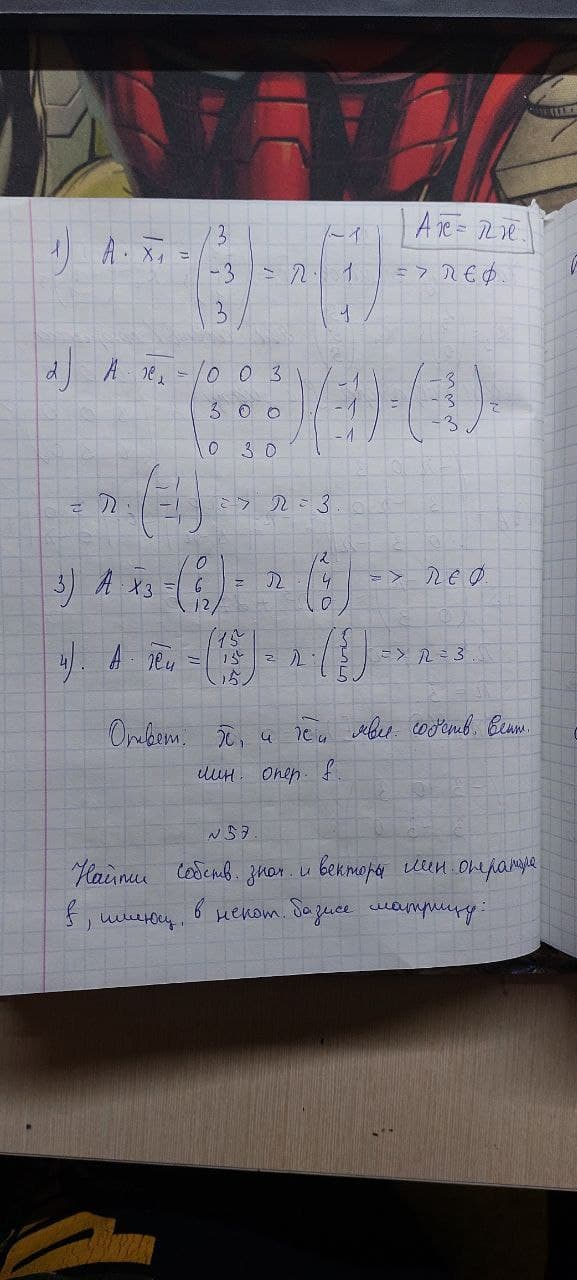 Ax̄ = λx̄.
1) A · x̄₁ = (3 -3 3) = λ · (-1 1 1) => λ ∈ ∅.
2) A · x̄₂ = (0 0 3 3 0 0 0 3 0) · (-1 -1 -1) = (-3 -3 -3) =
= λ · (-1 -1 -1) => λ = 3.
3) A · x̄₃ = (0 6 12) = λ · (2 4 0) => λ ∈ ∅.
4). A · x̄₄ = (15 15 15) = λ · (5 5 5) => λ = 3.
Ответ: x̄, и x̄₄ явл. собств. вект.
лин. опер. f.
№57.
Найти собств. знач. и векторы лин. оператора
f, имеющ. в некот. базисе матрицу: